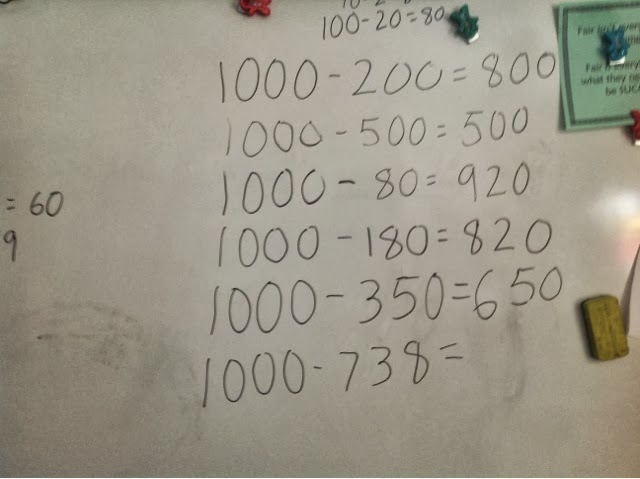 100-20=80
1000-200=800
1000-500=500
1000-80=920
1000-180=820
1000-350=650
1000-738=
= 60
9
Fair
Fair
what they
be